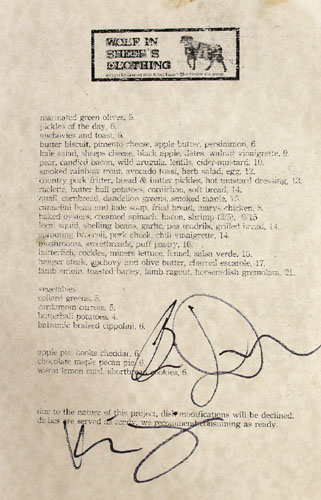 WOLF IN
SHEEP'S
CLOTHING
marinated green olives, 5.
pickles of the day, 6.
anchovies and toast, 6.
butter biscuit, pimento cheese, apple butter, persimmon, 6.
kale salad, sheeps cheese, black apple, dates, walnut vinaigrette, 9.
pear, candied bacon, wild arugula, lentils, cider-mustard, 10.
smoked rainbow trout, avocado toast, herb salad, egg, 12.
country pork fritter, bread & butter pickles, hot mustard dressing, 13.
raclette, butter ball potatoes, cornichon, soft bread, 14.
quail, cornbread, dandelion greens, smoked maple, 15.
cannelini bean and kale soup, fried bread, marys chicken, 8.
baked oysters, creamed spinach, bacon, shrimp (3/5), 9/15
local squid, shelling beans, garlic, pea tendrils, grilled bread, 14.
sprouting broccoli, pork cheek, chili vinaigrette, 14.
mushrooms, sweetbreads, puff pastry, 16.
butterfish, cockles, miners lettuce, fennel, salsa verde, 15.
hanger steak, anchovy and olive butter, charred escarole, 17.
lamb shoulder, toasted barley, lamb ragout, horseradish gremolata, 21.
vegetables:
collard greens, 5.
cardamom carrots, 5.
butterball potatoes, 4.
balsamic braised cippolini, 6.
apple pie, hooks cheddar, 6.
chocolate maple pecan pie, 6.
warm lemon curd, shortbread cookies, 6.
due to the nature of this project, dish modifications will be declined.
dishes are served as ready, we recommend consuming as ready.